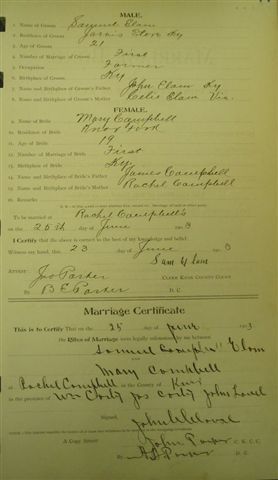 MALE.
1. Name of Groom Samuel Elam
2. Residence of Groom Jarvis Store Ky
3. Age of Groom 21
4. Number of Marriage of Groom First
5. Occupation Farmer
6. Birthplace of Groom Ky
7. Name and Birthplace of Groom's Father John Elam Ky
8. Name and Birthplace of Groom's Mother Celie Elam Vir.
FEMALE.
9. Name of Bride Mary Campbell
10. Residence of Bride Knox Ford
11. Age of Bride 19
12. Number of Marriage of Bride First
13. Birthplace of Bride Ky
14. Name and Birthplace of Bride's Father James Campbell
15. Name and Birthplace of Bride's Mother Rachel Campbell
16. Remarks
To be married at Rachel Campbell's
on the 25th day of June 3
I Certify that the above is correct to the best of my knowledge and belief.
Witness my hand, this 23 day of June 3
Attest
Jno Parker CLERK KNOX COUNTY COURT
By B E Parker D. C.
Marriage Certificate
This is to Certify That on the 25 day of June 1903
the Rites of Marriage were legally solemnized by me between
Samuel Elam
and Mary Campbell
at Rachel Campbell in the County of Knox
in the presence of
Signed,
A Copy Attest: John Parker C. K. C. C.
By Parker D. C.